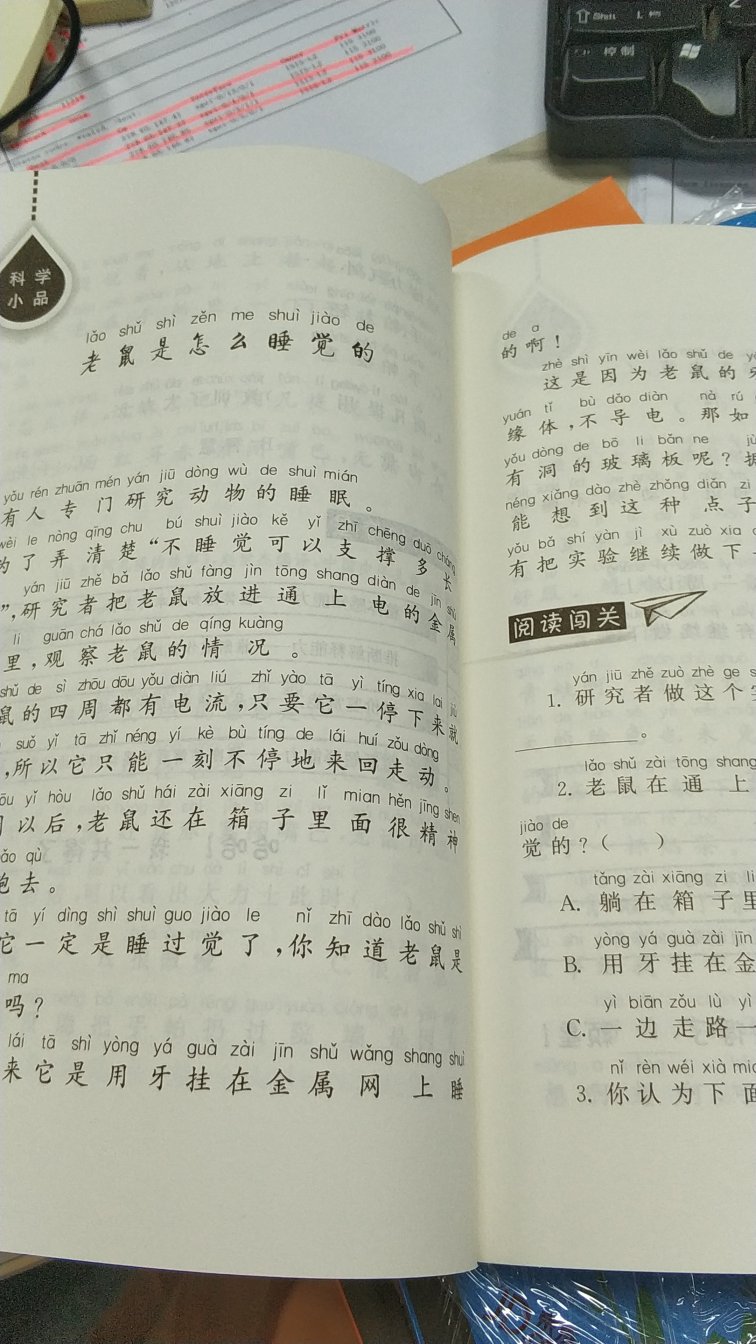 科学
小品
lǎo shǔ shì zěn me shuì jiào de
老鼠是怎么睡觉的
yǒu rén zhuān mén yán jiū dòng wù de shuì mián
有人专门研究动物的睡眠。
wèi le nòng qīng chu bú shuì jiào kě yǐ zhī chēng duō cháng
为了弄清楚“不睡觉可以支撑多长
yán jiū zhě bǎ lǎo shǔ fàng jìn tōng shang diàn de jīn shǔ
”,研究者把老鼠放进通上电的金属
li guān chá lǎo shǔ de qíng kuàng
里,观察老鼠的情况。
shǔ de sì zhōu dōu yǒu diàn liú zhǐ yào tā yì tíng xia lai jiù
鼠的四周都有电流,只要它一停下来就
suǒ yǐ tā zhǐ néng yí kè bù tíng de lái huí zǒu dòng
,所以它只能一刻不停地来回走动。
yǐ hòu lǎo shǔ hái zài xiāng zi lǐ mian hěn jīng shen
以后,老鼠还在箱子里面很精神
pǎo qù
跑去。
tā yí dìng shì shuì guo jiào le nǐ zhī dào lǎo shǔ shì
它一定是睡过觉了,你知道老鼠是
ma
吗?
lái tā shì yòng yá guà zài jīn shǔ wǎng shang shuì
来它是用牙挂在金属网上睡
de a
的啊!
zhè shì yīn wèi lǎo shǔ de
这是因为老鼠的
yuán tǐ bù dǎo diàn nà rú
缘体,不导电。那如
yǒu dòng de bō li bǎn ne
有洞的玻璃板呢?
néng xiǎng dào zhè zhǒng diǎn zi
能想到这种点子
yǒu bǎ shí yàn jì xù zuò xia
有把实验继续做下
阅读闯关
yán jiū zhě zuò zhè ge
1. 研究者做这个
。
lǎo shǔ zài tōng shang
2. 老鼠在通上
jiào de
觉的?( )
tǎng zài xiāng zi li
A. 躺在箱子里
yòng yá guà zài jīn
B. 用牙挂在金
yì biān zǒu lù yì
C. 一边走路一
nǐ rèn wéi xià
3. 你认为下面
Shift
控制